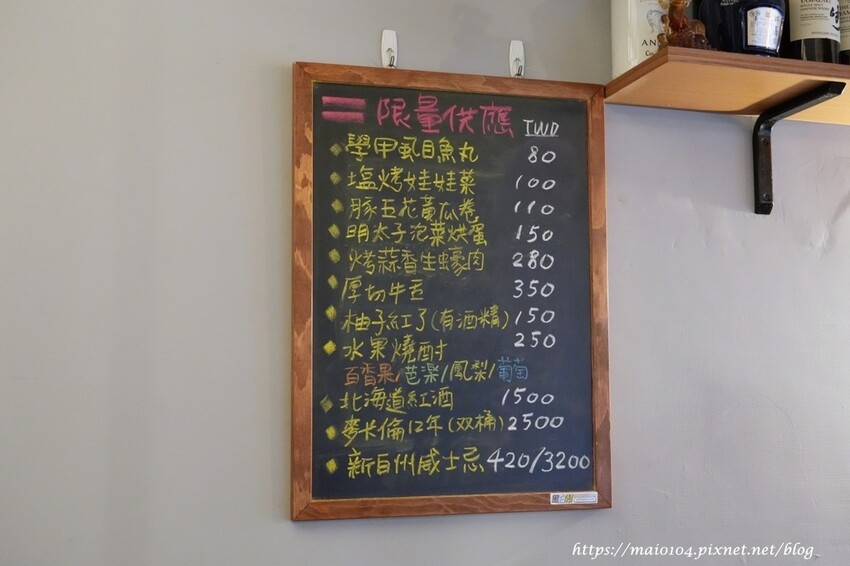 限量供應 TWD
學甲虱目魚丸 80
塩烤娃娃菜 100
豚五花黃瓜卷 110
明太子泡菜烘蛋 150
烤蒜香生蠔肉 280
厚切牛舌 350
柚子紅了(有酒精) 150
水果燒酎 250
百香果/芭樂/鳳梨/葡萄
北海道紅酒 1500
麥卡倫12年(双桶) 2500
新白州威士忌 420/3200
https://maio104.pixnet.net/blog